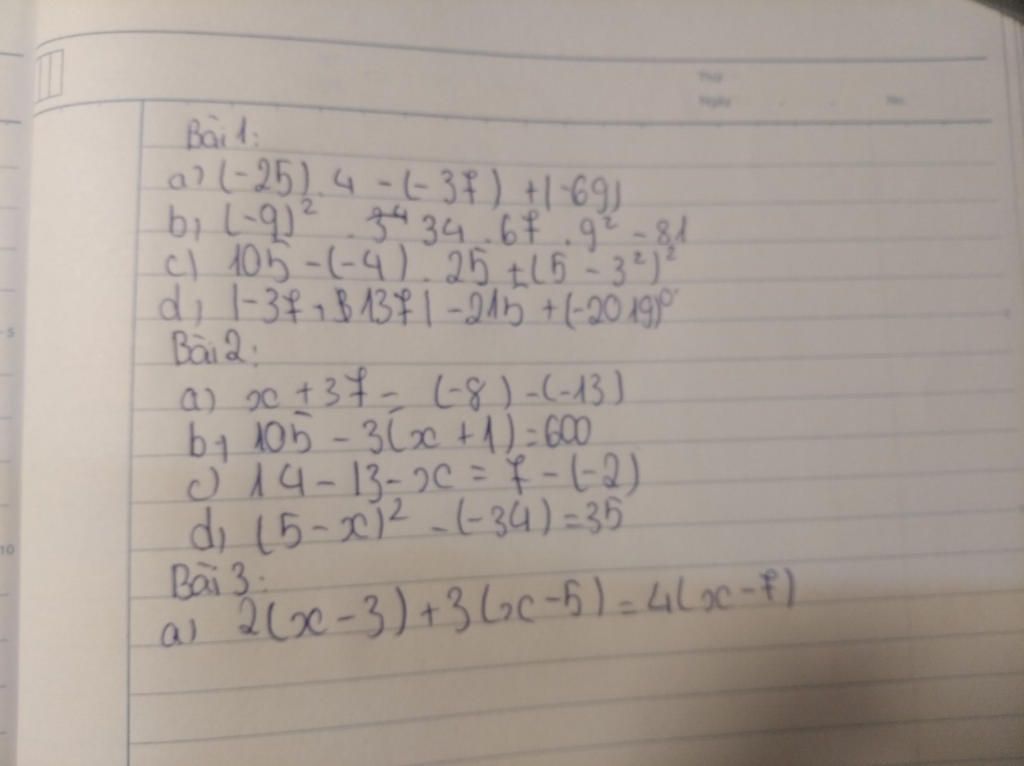 Thứ
Ngày . . No.
Bài 1:
a) (-25) . 4 - (-37) + |-69|
b, (-9)² . 3⁴ 34 . 67 . 9² - 81
c) 105 - (-4) . 25 + (5 - 3²)²
d, |-37 + 137| - 215 + (-2019)⁰
Bài 2:
a) x + 37 = (-8) - (-13)
b, 105 - 3(x + 1) = 600
c) 14 - 13 - x = 7 - (-2)
d, (5 - x)² - (-34) = 35
Bài 3:
a) 2(x - 3) + 3(x - 5) = 4(x - 7)
5
10